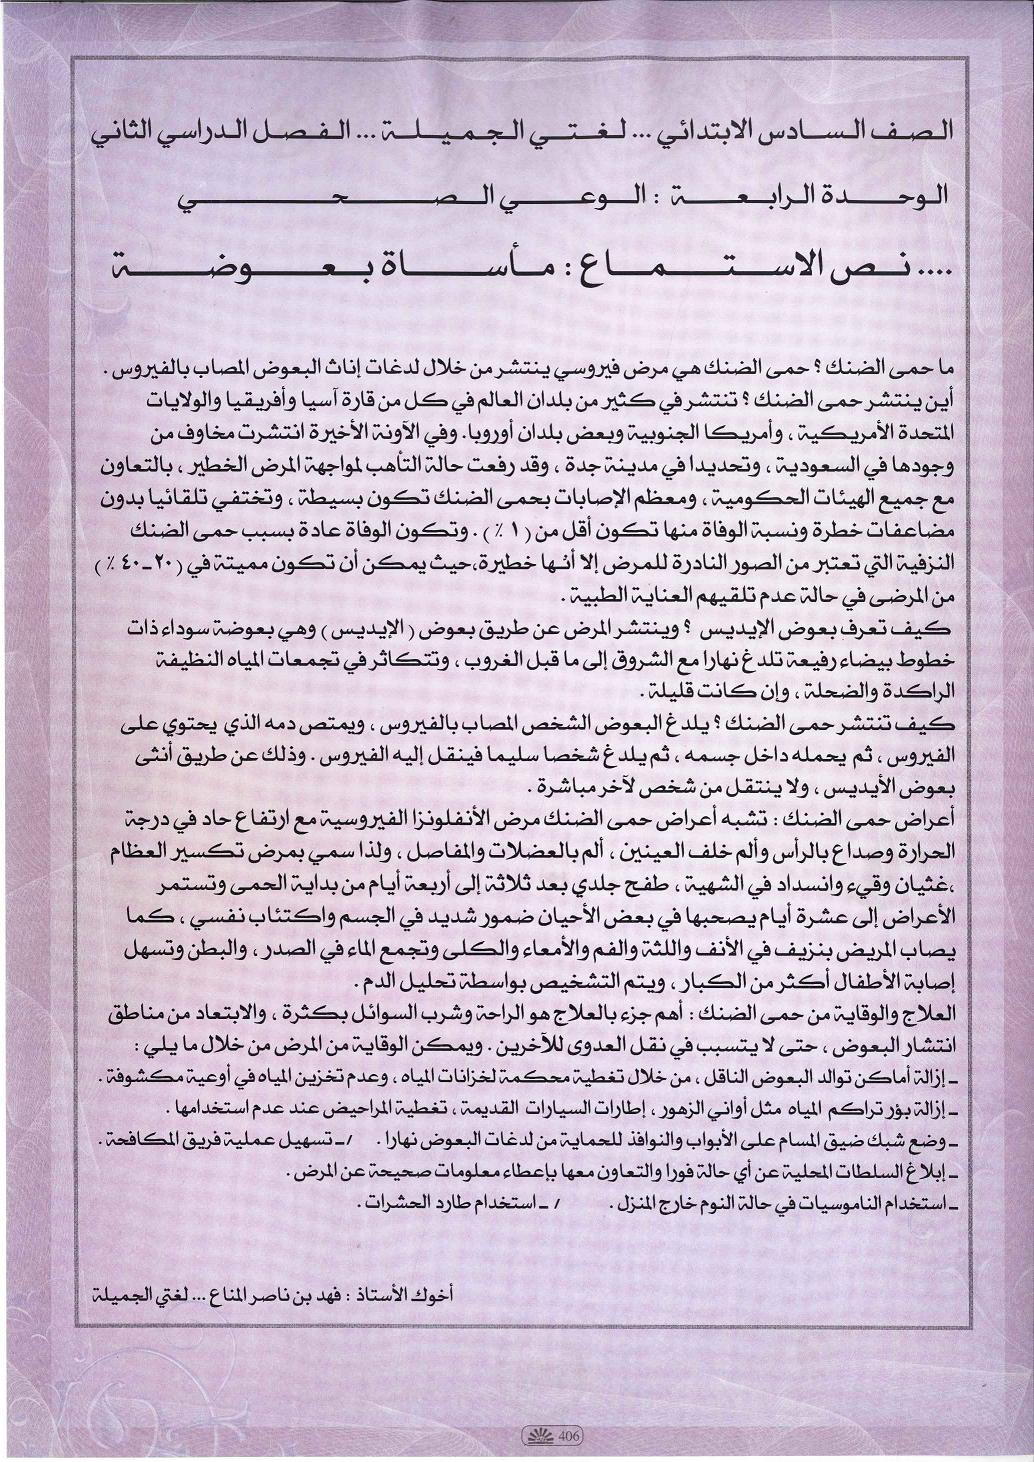 الصف السادس الابتدائي ... لغتي الجميلة ... الفصل الدراسي الثاني
الوحدة الرابعة : الوعي الصحي
.... نص الاستماع : مأساة بعوضة
ما حمى الضنك ؟ حمى الضنك هي مرض فيروسي ينتشر من خلال لدغات إناث البعوض المصاب بالفيروس .
أين ينتشر حمى الضنك ؟ تنتشر في كثير من بلدان العالم في كل من قارة آسيا وأفريقيا والولايات
المتحدة الأمريكية ، وأمريكا الجنوبية وبعض بلدان أوروبا. وفي الآونة الأخيرة انتشرت مخاوف من
وجودها في السعودية ، وتحديدا في مدينة جدة ، وقد رفعت حالة التأهب لمواجهة المرض الخطير ، بالتعاون
مع جميع الهيئات الحكومية ، ومعظم الإصابات بحمى الضنك تكون بسيطة ، وتختفي تلقائيا بدون
مضاعفات خطرة ونسبة الوفاة منها تكون أقل من ( ١ ٪ ) . وتكون الوفاة عادة بسبب حمى الضنك
النزفية التي تعتبر من الصور النادرة للمرض إلا أنها خطيرة،حيث يمكن أن تكون مميتة في ( ٢٠ـ٤٠ ٪ )
من المرضى في حالة عدم تلقيهم العناية الطبية .
كيف تعرف بعوض الإيديس ؟ وينتشر المرض عن طريق بعوض ( الإيديس ) وهي بعوضة سوداء ذات
خطوط بيضاء رفيعة تلدغ نهارا مع الشروق إلى ما قبل الغروب ، وتتكاثر في تجمعات المياه النظيفة
الراكدة والضحلة ، وإن كانت قليلة .
كيف تنتشر حمى الضنك ؟ يلدغ البعوض الشخص المصاب بالفيروس ، ويمتص دمه الذي يحتوي على
الفيروس ، ثم يحمله داخل جسمه ، ثم يلدغ شخصا سليما فينقل إليه الفيروس . وذلك عن طريق أنثى
بعوض الأيديس ، ولا ينتقل من شخص لآخر مباشرة .
أعراض حمى الضنك : تشبه أعراض حمى الضنك مرض الأنفلونزا الفيروسية مع ارتفاع حاد في درجة
الحرارة وصداع بالرأس وألم خلف العينين ، ألم بالعضلات والمفاصل ، ولذا سمي بمرض تكسير العظام
،غثيان وقيء وانسداد في الشهية ، طفح جلدي بعد ثلاثة إلى أربعة أيام من بداية الحمى وتستمر
الأعراض إلى عشرة أيام يصحبها في بعض الأحيان ضمور شديد في الجسم واكتئاب نفسي ، كما
يصاب المريض بنزيف في الأنف واللثة والفم والأمعاء والكلى وتجمع الماء في الصدر ، والبطن وتسهل
إصابة الأطفال أكثر من الكبار ، ويتم التشخيص بواسطة تحليل الدم .
العلاج والوقاية من حمى الضنك : أهم جزء بالعلاج هو الراحة وشرب السوائل بكثرة ، والابتعاد من مناطق
انتشار البعوض ، حتى لا يتسبب في نقل العدوى للآخرين . ويمكن الوقاية من المرض من خلال ما يلي :
ـ إزالة أماكن توالد البعوض الناقل ، من خلال تغطية محكمة لخزانات المياه ، وعدم تخزين المياه في أوعية مكشوفة .
ـ إزالة بؤر تراكم المياه مثل أواني الزهور ، إطارات السيارات القديمة ، تغطية المراحيض عند عدم استخدامها .
ـ وضع شبك ضيق المسام على الأبواب والنوافذ للحماية من لدغات البعوض نهارا . / ـ تسهيل عملية فريق المكافحة .
ـ إبلاغ السلطات المحلية عن أي حالة فورا والتعاون معها بإعطاء معلومات صحيحة عن المرض .
ـ استخدام الناموسيات في حالة النوم خارج المنزل . / ـ استخدام طارد الحشرات .
أخوك الأستاذ : فهد بن ناصر المناع ... لغتي الجميلة
406